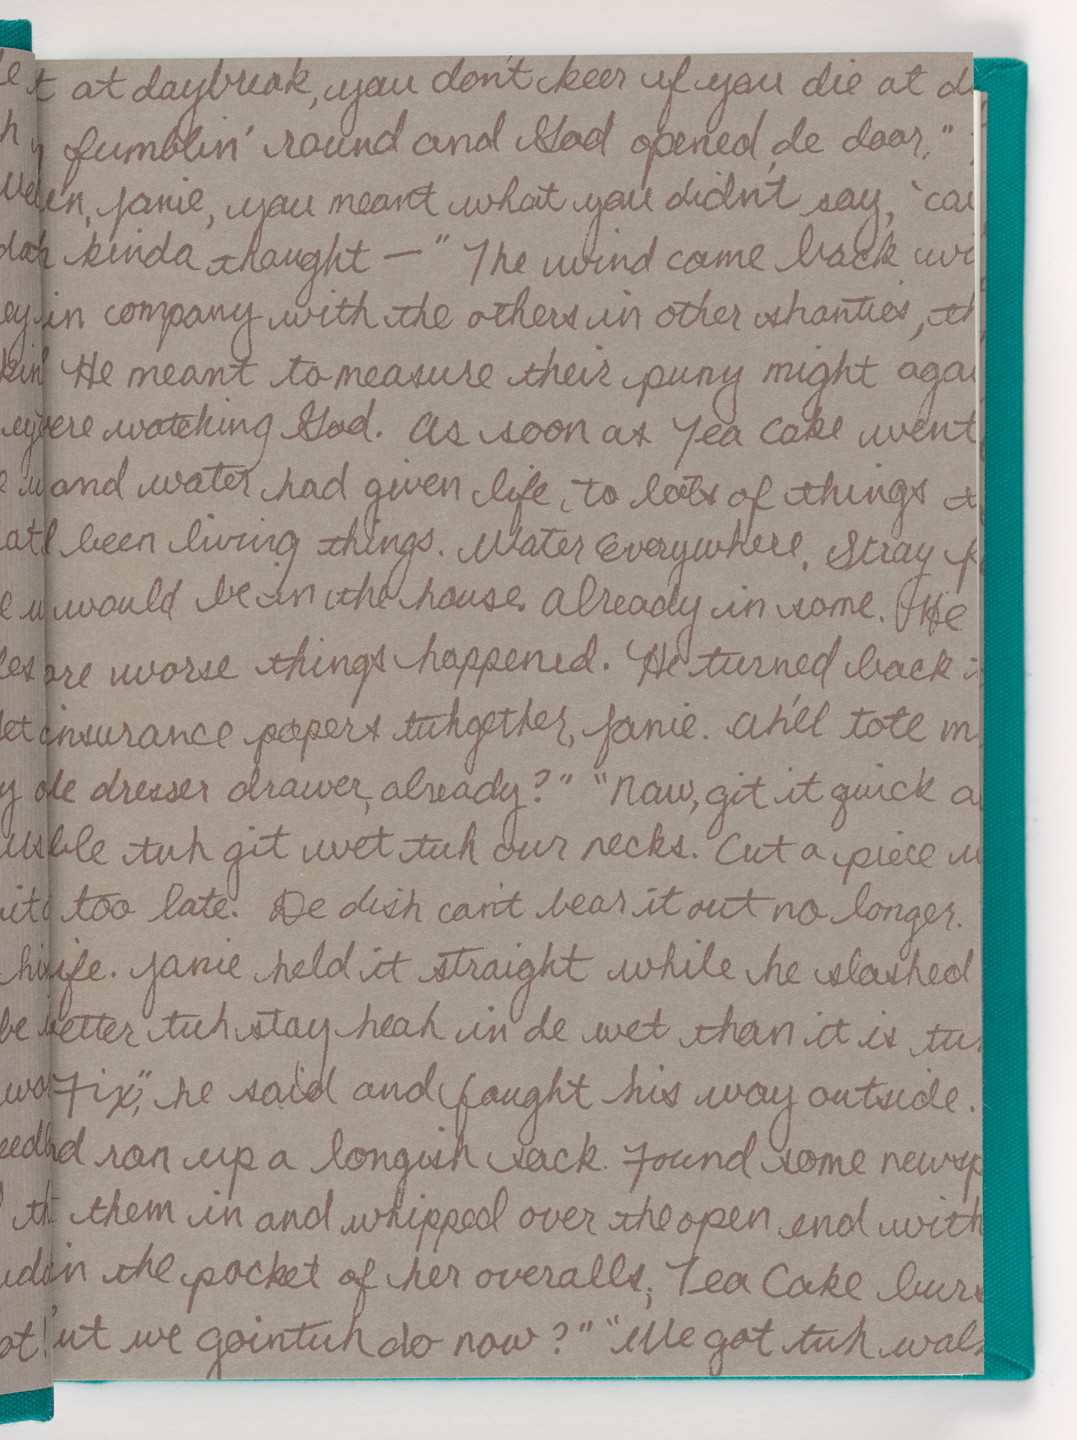 t at daybreak, you don't keer if you die at d
fumblin' round and God opened de door."
en, Janie, you meant what you didn't say, 'cau
kinda thought — " The wind came back wi
in company with the others in other shanties, th
He meant to measure their puny might agai
ere watching God. As soon as Tea Cake went
and water had given life to lots of things t
been living things. Water everywhere. Stray f
would be in the house. Already in some. He
are worse things happened. He turned back i
insurance papers tuhgether, Janie. Ah'll tote m
de dresser drawer, already?" "Naw, git it quick a
ble tuh git wet tuh our necks. Cut a piece u
too late. De dish can't bear it out no longer.
ife. Janie held it straight while he slashed
better tuh stay heah in de wet than it is tuh
Fix", he said and fought his way outside.
d ran up a longish sack. Found some newsp
them in and whipped over the open end with
in the pocket of her overalls, Tea Cake burs
ut we gointuh do now?" "We got tuh walk